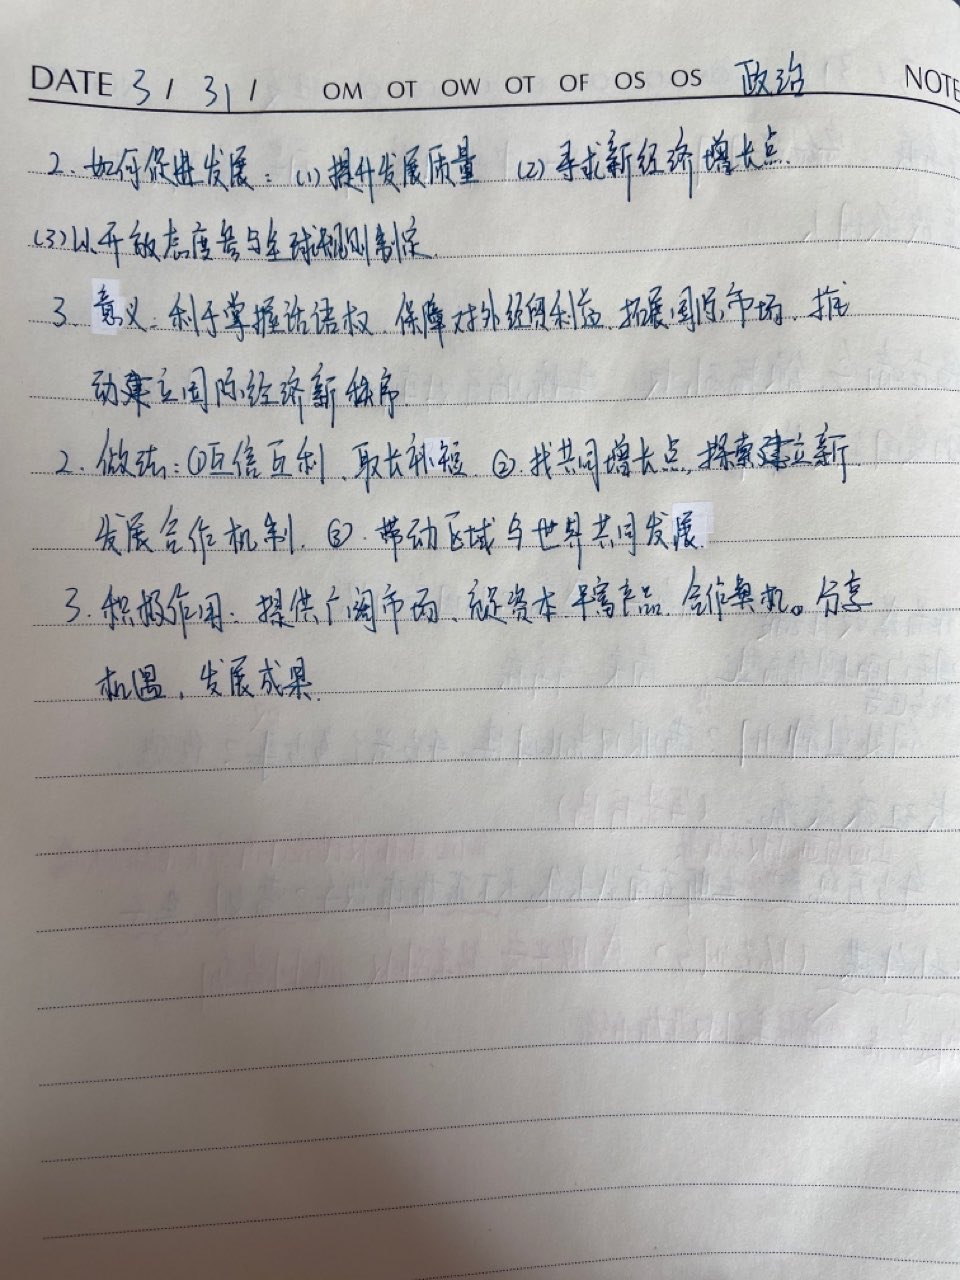 DATE 3 / 31 / OM OT OW OT OF OS OS 政治 NOTE
2. 如何促进发展：(1) 提升发展质量 (2) 寻求新经济增长点.
(3) 以开放态度参与全球规则制定.
3. 意义：利于掌握话语权、保障对外经贸利益、拓展国际市场、推
动建立国际经济新秩序.
2. 做法：①互信互利、取长补短 ②. 找共同增长点, 探索建立新
发展合作机制. ③. 带动区域与世界共同发展.
3. 积极作用：提供广阔市场、充足资本、丰富产品、合作契机。分享
机遇、发展成果.